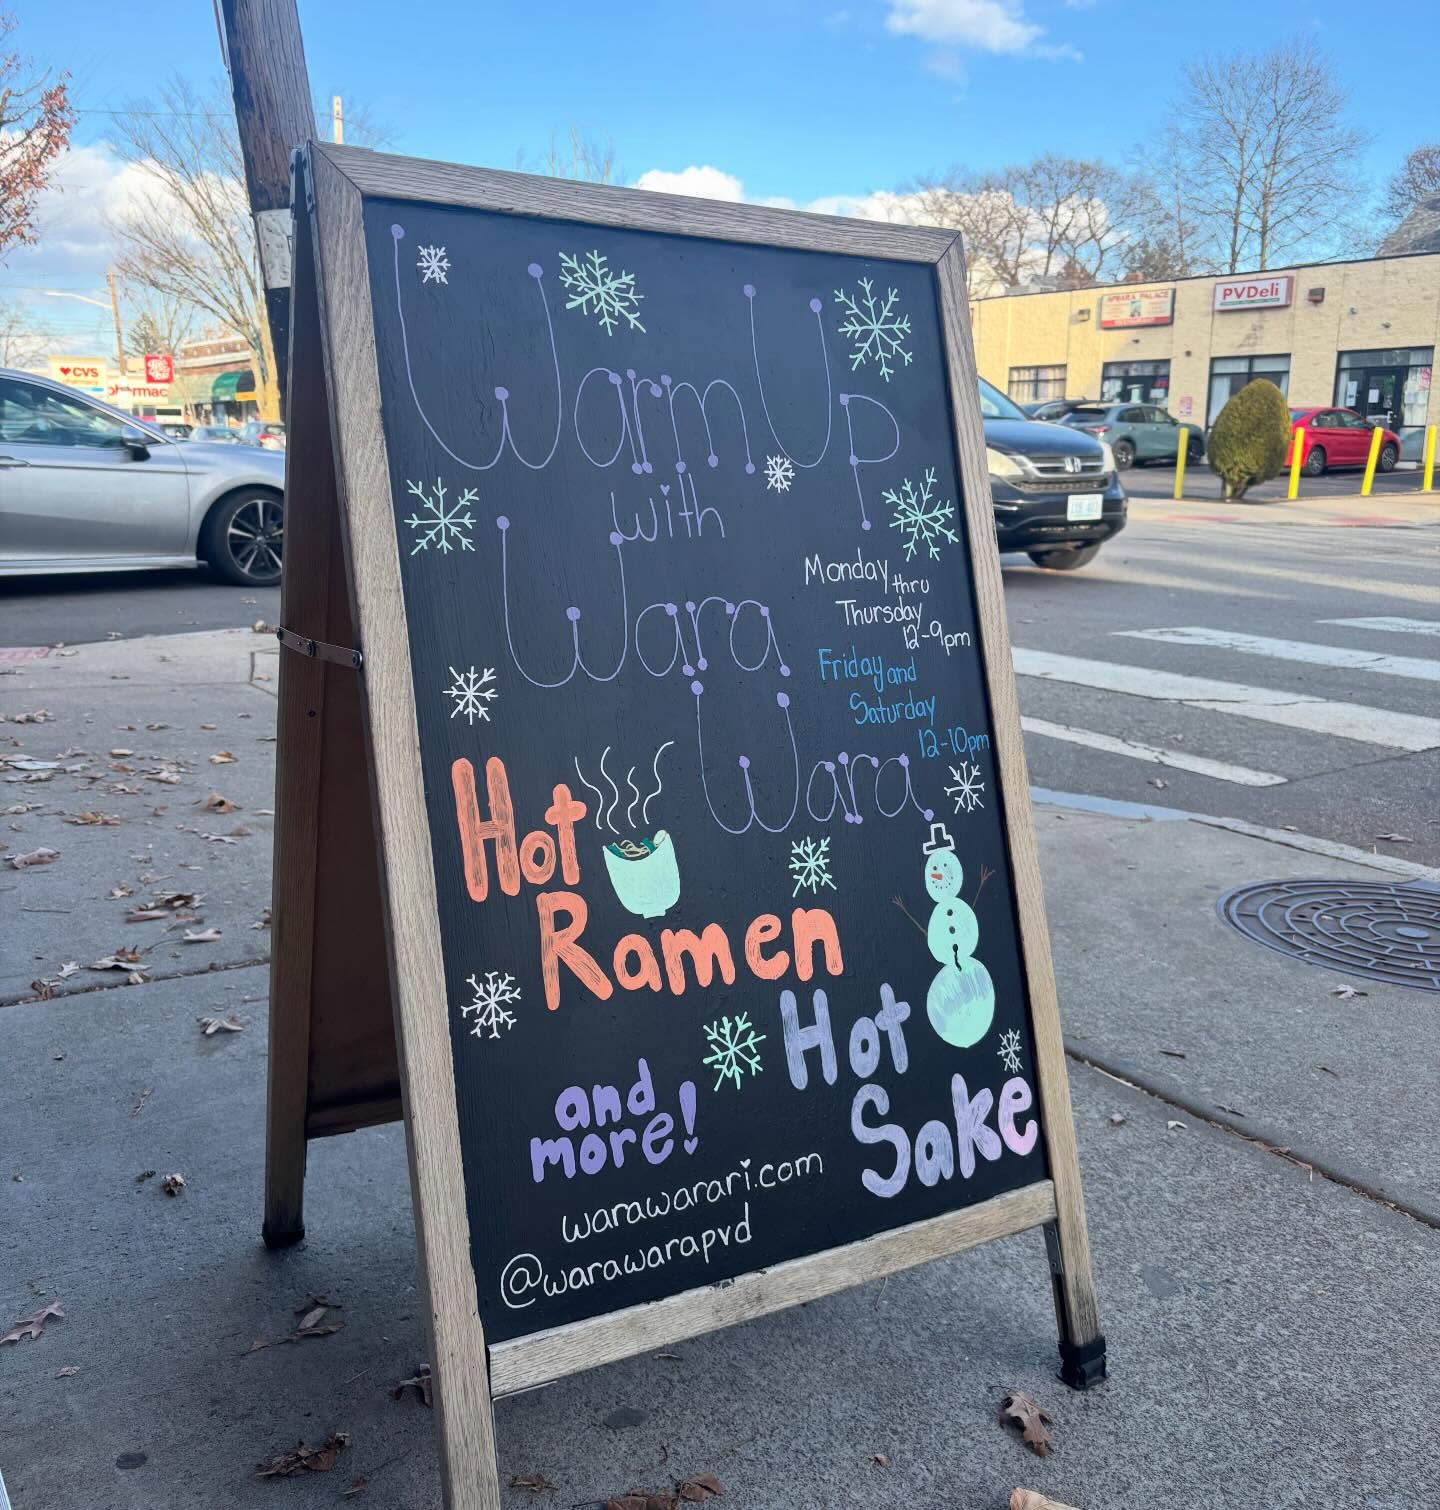 Warm Up
with
Wara
Wara
Monday thru
Thursday
12-9pm
Friday and
Saturday
12-10pm
Hot
Ramen
Hot
Sake
and
more!
warawarari.com
@warawarapvd
CVS
pharmacy
APSARA PALACE
PVDeli